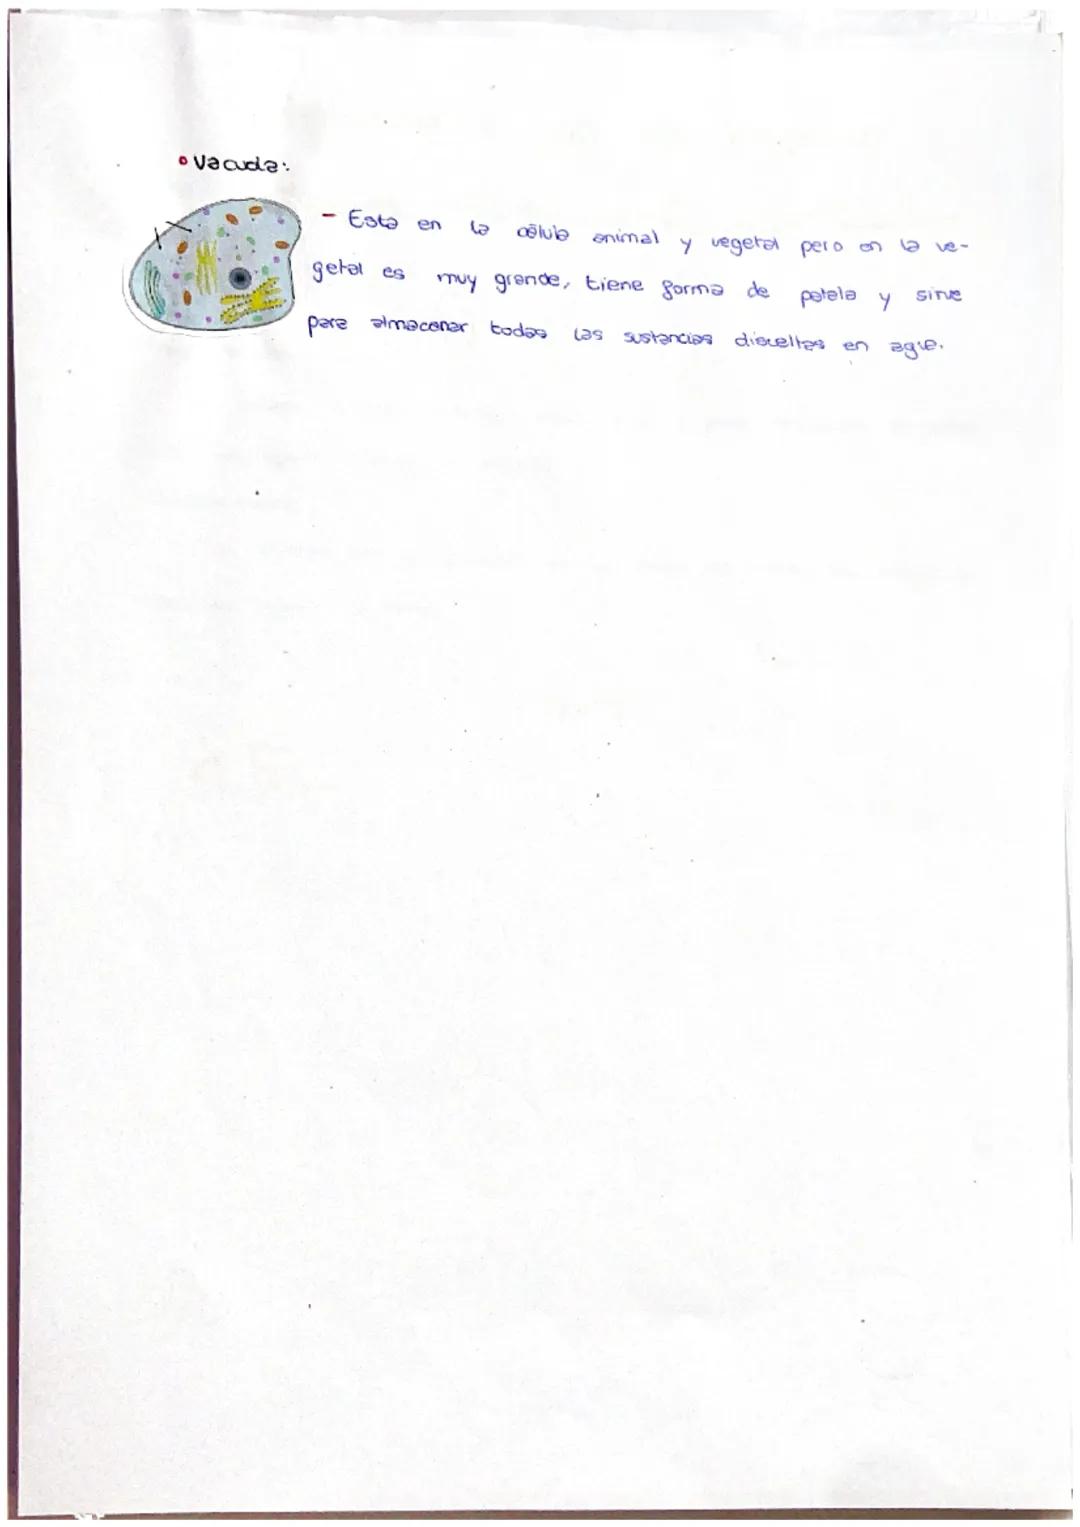 Vacuola:
- Esta en la célula animal y vegetal pero en la ve-
getal es muy grande, tiene forma de patata y sirve
para almacenar todas las sustancias disueltas en agua.